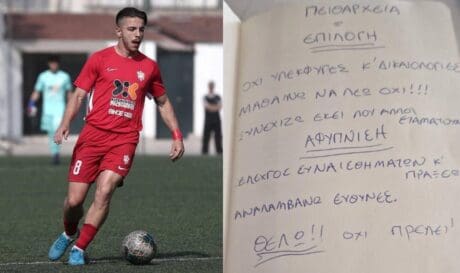 ΠΕΙΘΑΡΧΕΙΑ
ΕΠΙΛΟΓΗ
ΟΧΙ ΥΠΕΚΦΥΓΕΣ Κ' ΔΙΚΑΙΟΛΟΓΙΕΣ
ΜΑΘΑΙΝΩ ΝΑ ΛΕΩ ΟΧΙ!!!
ΣΥΝΕΧΙΖΩ ΕΚΕΙ ΠΟΥ ΑΛΛΟΙ ΣΤΑΜΑΤΟΥΝ
ΑΦΥΠΝΙΣΗ
ΕΛΕΓΧΟΣ ΣΥΝΑΙΣΘΗΜΑΤΩΝ Κ' ΠΡΑΞΕΩΝ
ΑΝΑΛΑΜΒΑΝΩ ΕΥΘΥΝΕΣ.
ΘΕΛΩ!! ΟΧΙ ΠΡΕΠΕΙ
8